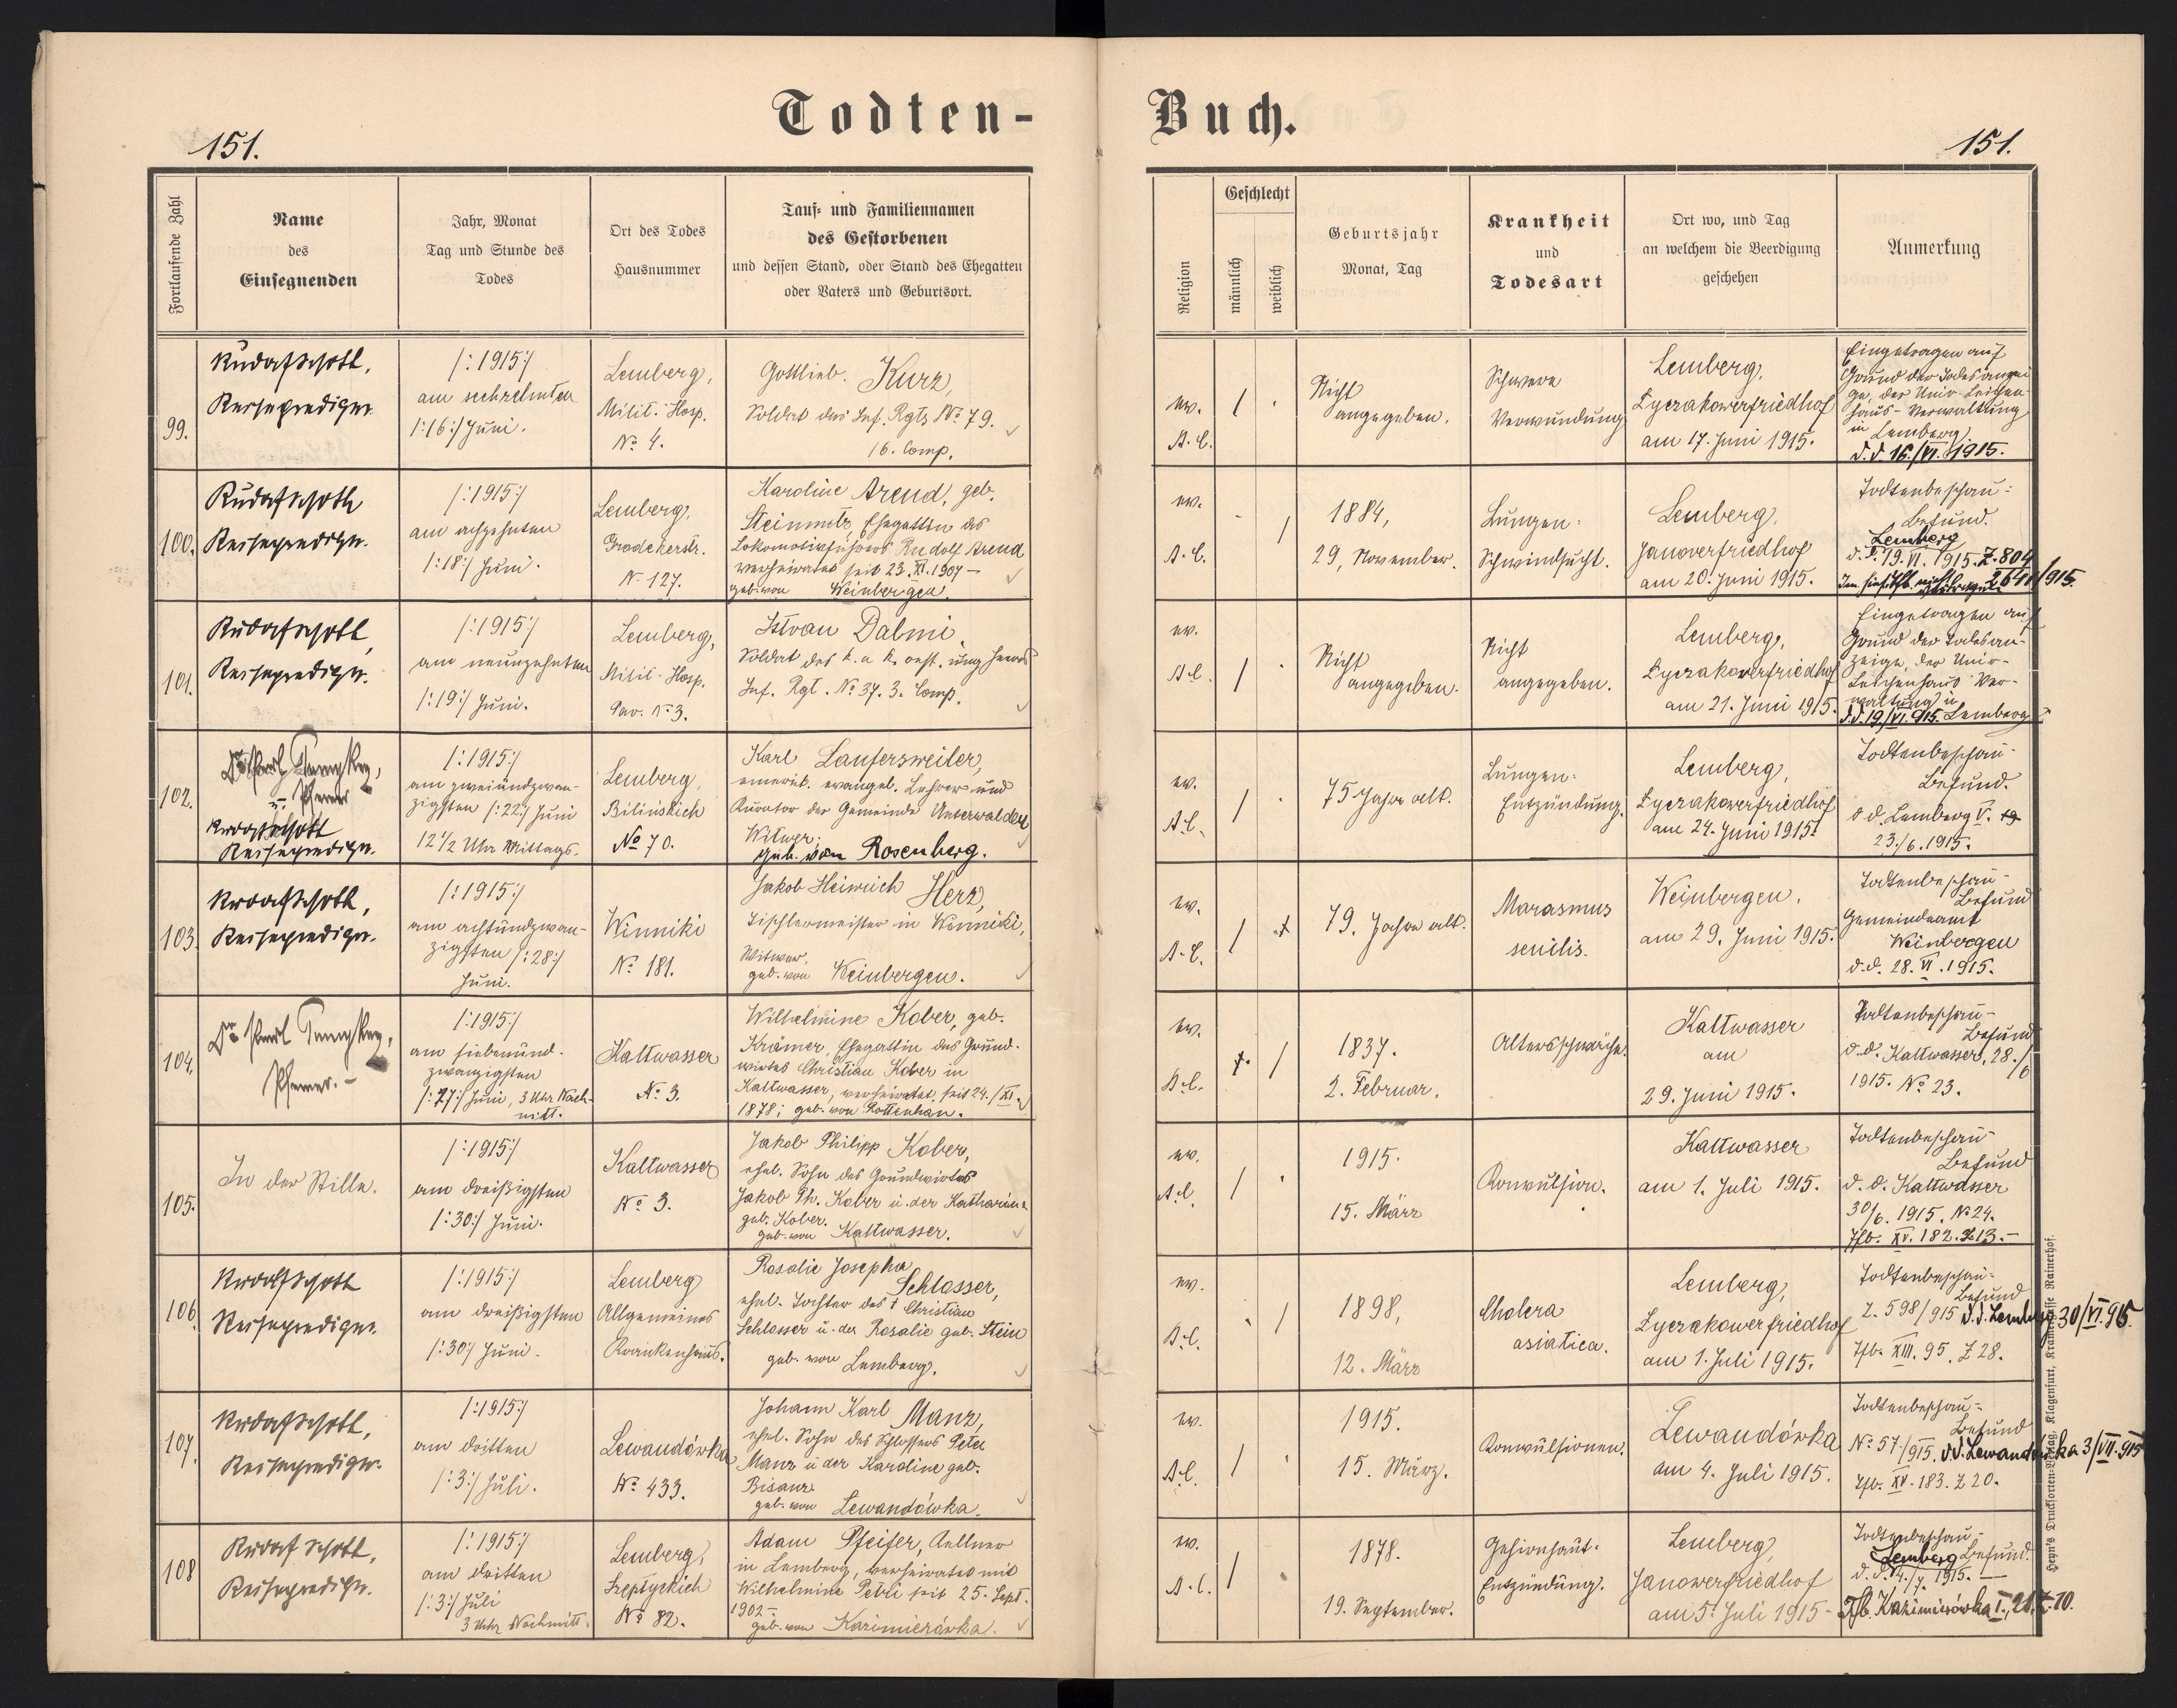 Todten-
Buch.
151.
151.
Fortlaufende Zahl
Name
des
Einsegnenden
Jahr, Monat
Tag und Stunde des
Todes
Ort des Todes
Hausnummer
Tauf- und Familiennamen
des Gestorbenen
und dessen Stand, oder Stand des Ehegatten
oder Vaters und Geburtsort.
Religion
Geschlecht
männlich
weiblich
Geburtsjahr
Monat, Tag
Krankheit
und
Todesart
Ort wo, und Tag
an welchem die Beerdigung
geschehen
Anmerkung
99.
Reiseprediger
/:1915:/
am sechzehnten
/:16:/ Juni.
Lemberg,
Milit. Hosp.
No 4.
Gottlieb. Kurz,
Soldat des Inf. Rgts No 79.
16. Comp.
ev.
A. C.
/
Nicht
angegeben.
Schwere
Verwundung
Lemberg,
Lyczakowerfriedhof
am 17. Juni 1915.
Eingetragen auf
Grund der Todesanzei
ge, der Univ. Leichen
haus-Verwaltung
in Lemberg
d. d. 16./VI. 1915.
100.
Reiseprediger.
/:1915:/
am achzehnten
/:18:/ Juni.
Lemberg,
Grodekerstr.
No 127.
Karoline Arend, geb.
Steinmetz, Ehegattin des
Lokomotivführers Rudolf Arend
verheiratet seit 23. XI. 1907 -
geb. von Weinbergen.
ev.
A. C.
/
1884,
29, November.
Lungen-
Schwindsucht.
Lemberg,
Janoverfriedhof
am 20. Juni 1915.
Todtenbeschau-
Befund.
Lemberg
d. d. 19. VI. 1915. Z. 804
101.
Reiseprediger.
/:1915:/
am neunzehnten
/:19:/ Juni.
Lemberg,
Milit. Hosp.
Pav. No 3.
Istvan Dalmi,
Soldat des k. u k. oest. ung
Inf. Rgt. No 37. 3. Comp.
ev.
A. C.
/
Nicht
angegeben.
Nicht
angegeben.
Lemberg,
Lyczakowerfriedhof
am 21. Juni 1915.
Eingetragen auf
Grund der Todesan-
zeige, der Univ-
Leichenhaus Ver-
waltung in
d. d. 19/VI. 915. Lemberg
102.
u.
Reiseprediger.
/:1915:/
am zweiundzwan-
zigsten /:22:/ Juni
12 1/2 Uhr Mittags.
Lemberg,
Bilinskich
No 70.
Karl Laufersweiler,
emerit. evangel. Lehrer und
Kurator der Gemeinde Unterwalden
Witwer.
geb. von Rosenberg.
ev.
A. C.
/
75 Jahre alt.
Lungen-
Entzündung.
Lemberg,
Lyczakowerfriedhof
am 24. Juni 1915.
Todtenbeschau-
Befund.
d d. Lemberg V.
23./6. 1915.
103.
Reiseprediger.
/:1915:/
am achtundzwan-
zigsten /:28:/
Juni.
Winniki
No 181.
Jakob Heinrich Herz,
Tischlermeister in Winniki,
Witwer,
geb. von Weinbergen.
ev.
A. C.
/
79. Jahre alt.
Marasmus
senilis.
Weinbergen.
am 29. Juni 1915.
Todtenbeschau-
Befund
Gemeindeamt
Weinbergen
d. d. 28. VI. 1915.
104.
Pfarrer. -
/:1915:/
am siebenund-
zwanzigsten
/:27:/ Juni, 3 Uhr Nach-
mitt.
Kaltwasser
No 3.
Wilhelmine Kober, geb.
Krämer, Ehegattin des Grund-
wirtes Christian Kober in
Kaltwasser, verheiratet seit 24./XI.
1878; geb. von Rottenhan.
ev.
A. C.
/
1837.
2. Februar.
Altersschwäche.
Kaltwasser
am
29. Juni 1915.
Todtenbeschau-
Befund
d. d. Kaltwasser, 28./6
1915. No 23.
105.
In der Stille.
/:1915:/
am dreißigsten
/:30:/ Juni.
Kaltwasser
No 3.
Jakob Philipp Kober,
ehel. Sohn des Grundwirtes
Jakob Ph. Kober u. der Katharina
geb. Kober.
geb. von Kaltwasser.
ev.
A. C.
/
1915.
15. März
Konvulsion.
Kaltwasser
am 1. Juli 1915.
Todtenbeschau-
Befund
d. d. Kaltwasser
30/6. 1915. No 24.
Tfb. XV. 182. Z 13. -
106.
Reiseprediger.
/:1915:/
am dreißigsten
/:30:/ Juni.
Lemberg
Allgemeines
Krankenhaus.
Rosalie Josepha
Schlosser,
ehel. Tochter des † Christian
Schlosser u. der Rosalie geb. Stein
geb. von Lemberg.
ev.
A. C.
/
1898,
12. März
Cholera
asiatica.
Lemberg,
Lyczakowerfriedhof
am 1. Juli 1915.
Todtenbeschau-
Befund
Z. 598/915 d. d. Lemberg 30/VI. 915.
Tfb. XIII. 95. Z 28.
107.
Reiseprediger.
/:1915:/
am dritten
/:3:/ Juli.
Lewandówka
No 433.
Johann Karl Manz,
ehel. Sohn des Schlossers Peter
Manz u. der Karoline geb.
Bisanz
geb. von Lewandówka.
ev.
A. C.
/
1915.
15. März.
Konvulsionen.
Lewandówka
am 4. Juli 1915.
Todtenbeschau-
Befund
No 57/915. d. d. Lewandówka 3/VII. 915
Tfb. XV. 183. Z 20.
108
Rudolf Schott,
Reiseprediger.
/:1915:/
am dritten
/:3:/ Juli
3 Uhr Nachmitt.
Lemberg,
Szeptyckich
No 82.
Adam Pfeifer, Kellner
in Lemberg, verheiratet mit
Wilhelmine Petri seit 25. Sept.
1902 -
geb. von Kazimierówka.
ev.
A. C.
/
1878.
19. September.
Gehirnhaut-
Entzündung.
Lemberg,
Janowerfriedhof
am 5. Juli 1915-
Todtenbeschau-
Lemberg Befund.
d. d. 4./7. 1915. -
Tfb. Kazimierówka I., 21. Z. 10.
Heyn's Drucksorten-Verlag, Klagenfurt, Kramergasse Rainerhof.